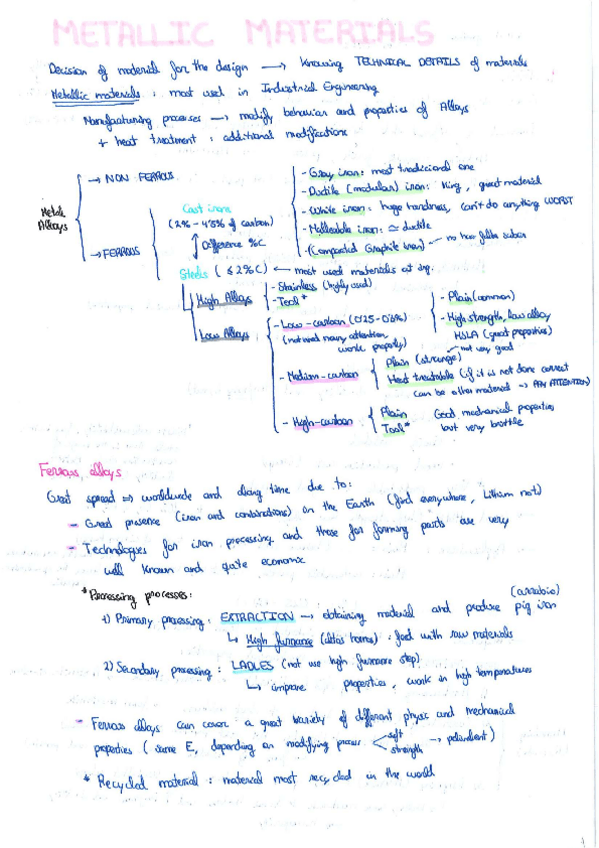 METALLIC MATERIALS
Decision of material for the design → knowing TECHNICAL DETAILS of materials
Metallic materials : most used in Industrial Engineering
Manufacturing processes → modify behavior and properties of Alloys
+ heat treatment : additional modifications
Metal Alloys
→ NON FERROUS
→ FERROUS
Cast irons
(2% - 4'5% of carbon)
↕ Difference %C
- Gray iron: most tradicional one
- Ductile (modular) iron: King, great material
- White iron: huge hardness, can't do anything WORST
- Malleable iron: ≃ ductile
- (Compacted Graphite iron)
Steels ( ≤ 2% C) ← most used materials at
High Alloys
- Stainless (highly used)
- Tool *
Low Alloys
- Low-carbon (0'25-0'6%)
(not need many attention,
work properly)
- Plain (common)
- High strength, low alloy
HSLA (great properties)
- Medium-carbon
Plain (strange)
not very good
Heat treatable (if it is not done correct
can be other material → PAY ATTENTION)
- High-carbon
Plain
Tool *
Good mechanical properties
but very brittle
Ferrous alloys
Great spread ⇒ worldwide and along time due to:
- Great presence (iron and combinations) on the Earth (find everywhere, Lithium not)
- Technologies for iron processing and those for forming parts are very
well known and quite economic
* Processing processes:
1) Primary processing : EXTRACTION → obtaining material and produce pig iron (arrabio)
↳ High furnance (altos hornos) : feed with raw materials
2) Secondary processing : LADLES (not use high furnance step)
↳ improve properties, work in high temperatures
- Ferrous alloys can cover a great variety of different physic and mechanical
properties ( same E, depending on modifying process
soft
strength
→ polivalent )
* Recycled material : material most recycled in the world